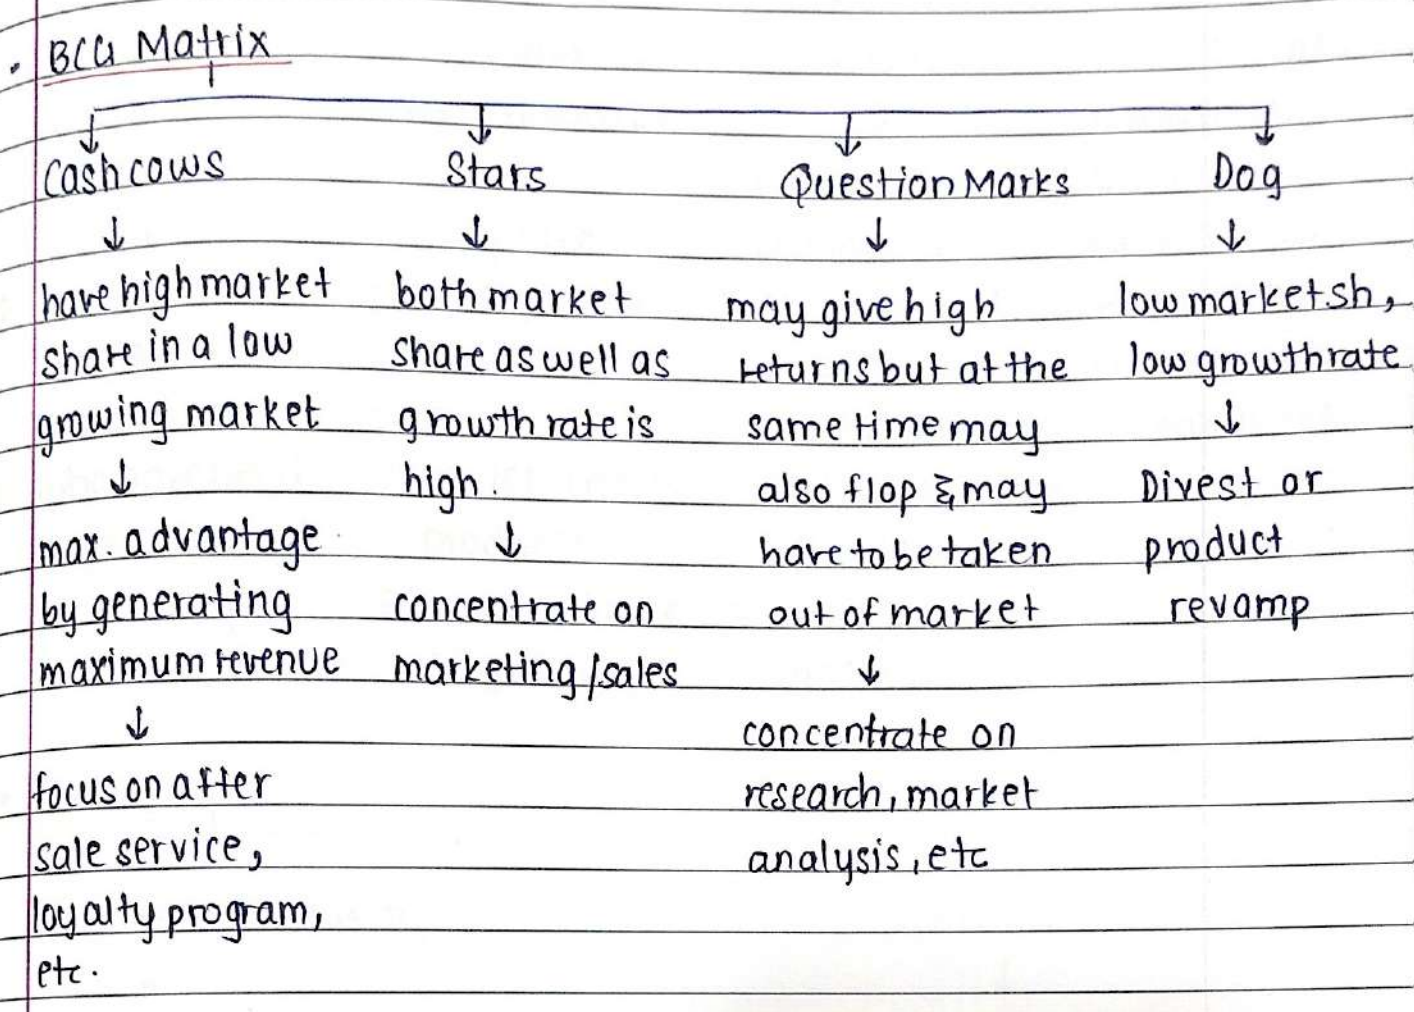 . BCG Matrix
Cash cows
↓
have high market
share in a low
growing market
↓
max. advantage
by generating
maximum revenue
↓
focus on after
sale service,
loyalty program,
etc.
Stars
↓
both market
share as well as
growth rate is
high.
↓
concentrate on
marketing/sales
Question Marks
↓
may give high
returns but at the
same time may
also flop & may
have to be taken
out of market
↓
concentrate on
research, market
analysis, etc
Dog
↓
low market sh,
low growth rate
↓
Divest or
product
revamp